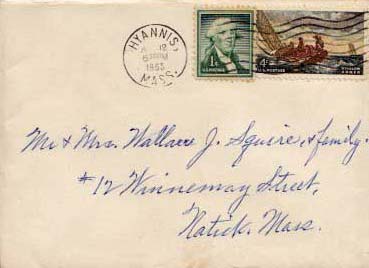 HYANNIS,
12
1963
MASS.
1¢
U.S. POSTAGE
4¢
U.S. POSTAGE
WINSLOW
HOMER
Mr & Mrs. Wallace J. Squire, & family.
#12 Winnemay Street,
Natick, Mass.